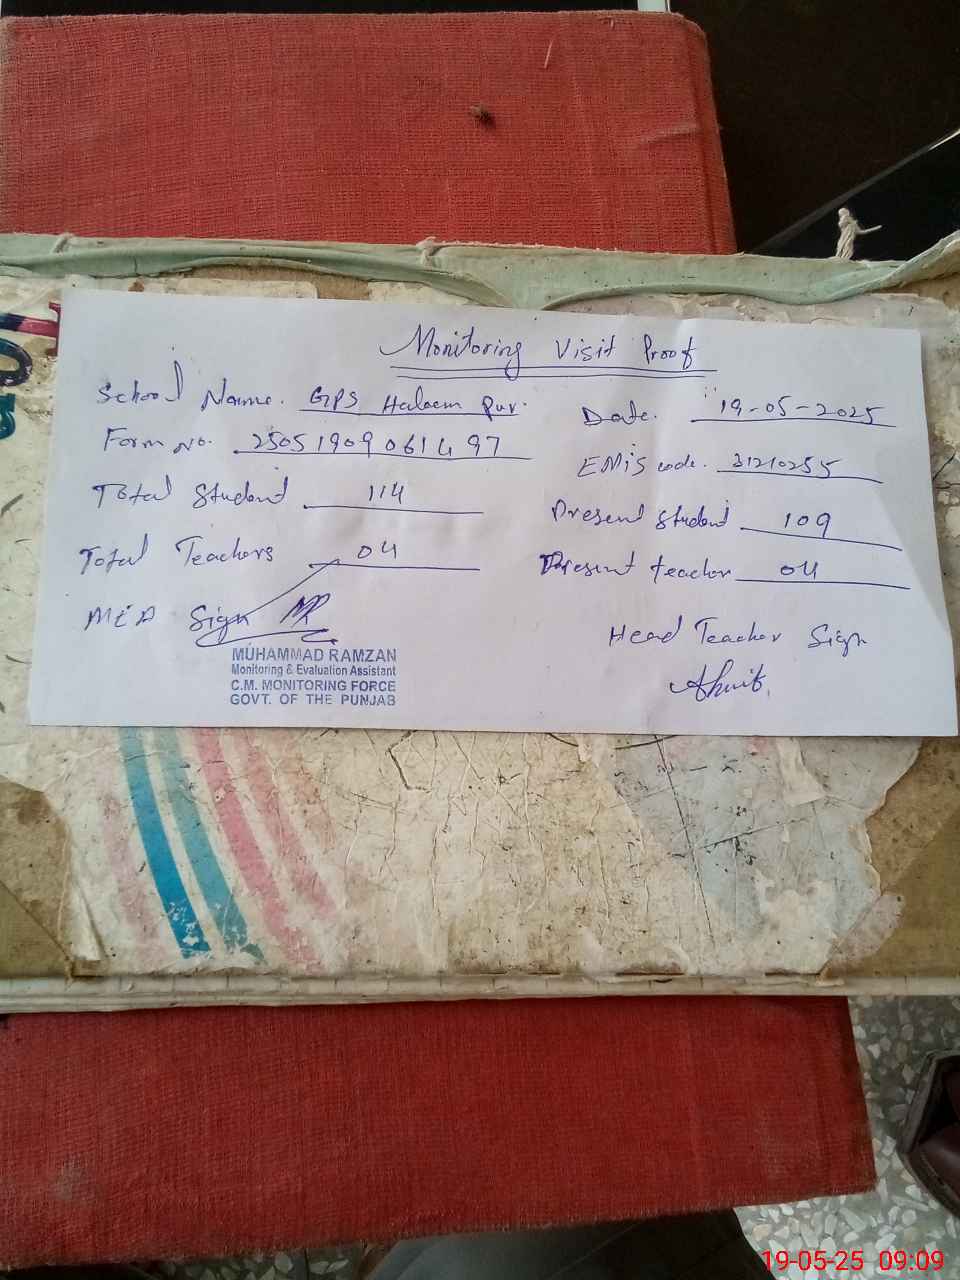 Monitoring Visit Proof
School Name. GPS Haleem Pur.
Date. 19-05-2025
Form No. 25051909061497
EMIS code. 31210255
Total Student 114
Present Student 109
Total Teachers 04
Present teacher 04
MEA Sign
MUHAMMAD RAMZAN
Monitoring & Evaluation Assistant
C.M. MONITORING FORCE
GOVT. OF THE PUNJAB
Head Teacher Sign
19-05-25 09:09